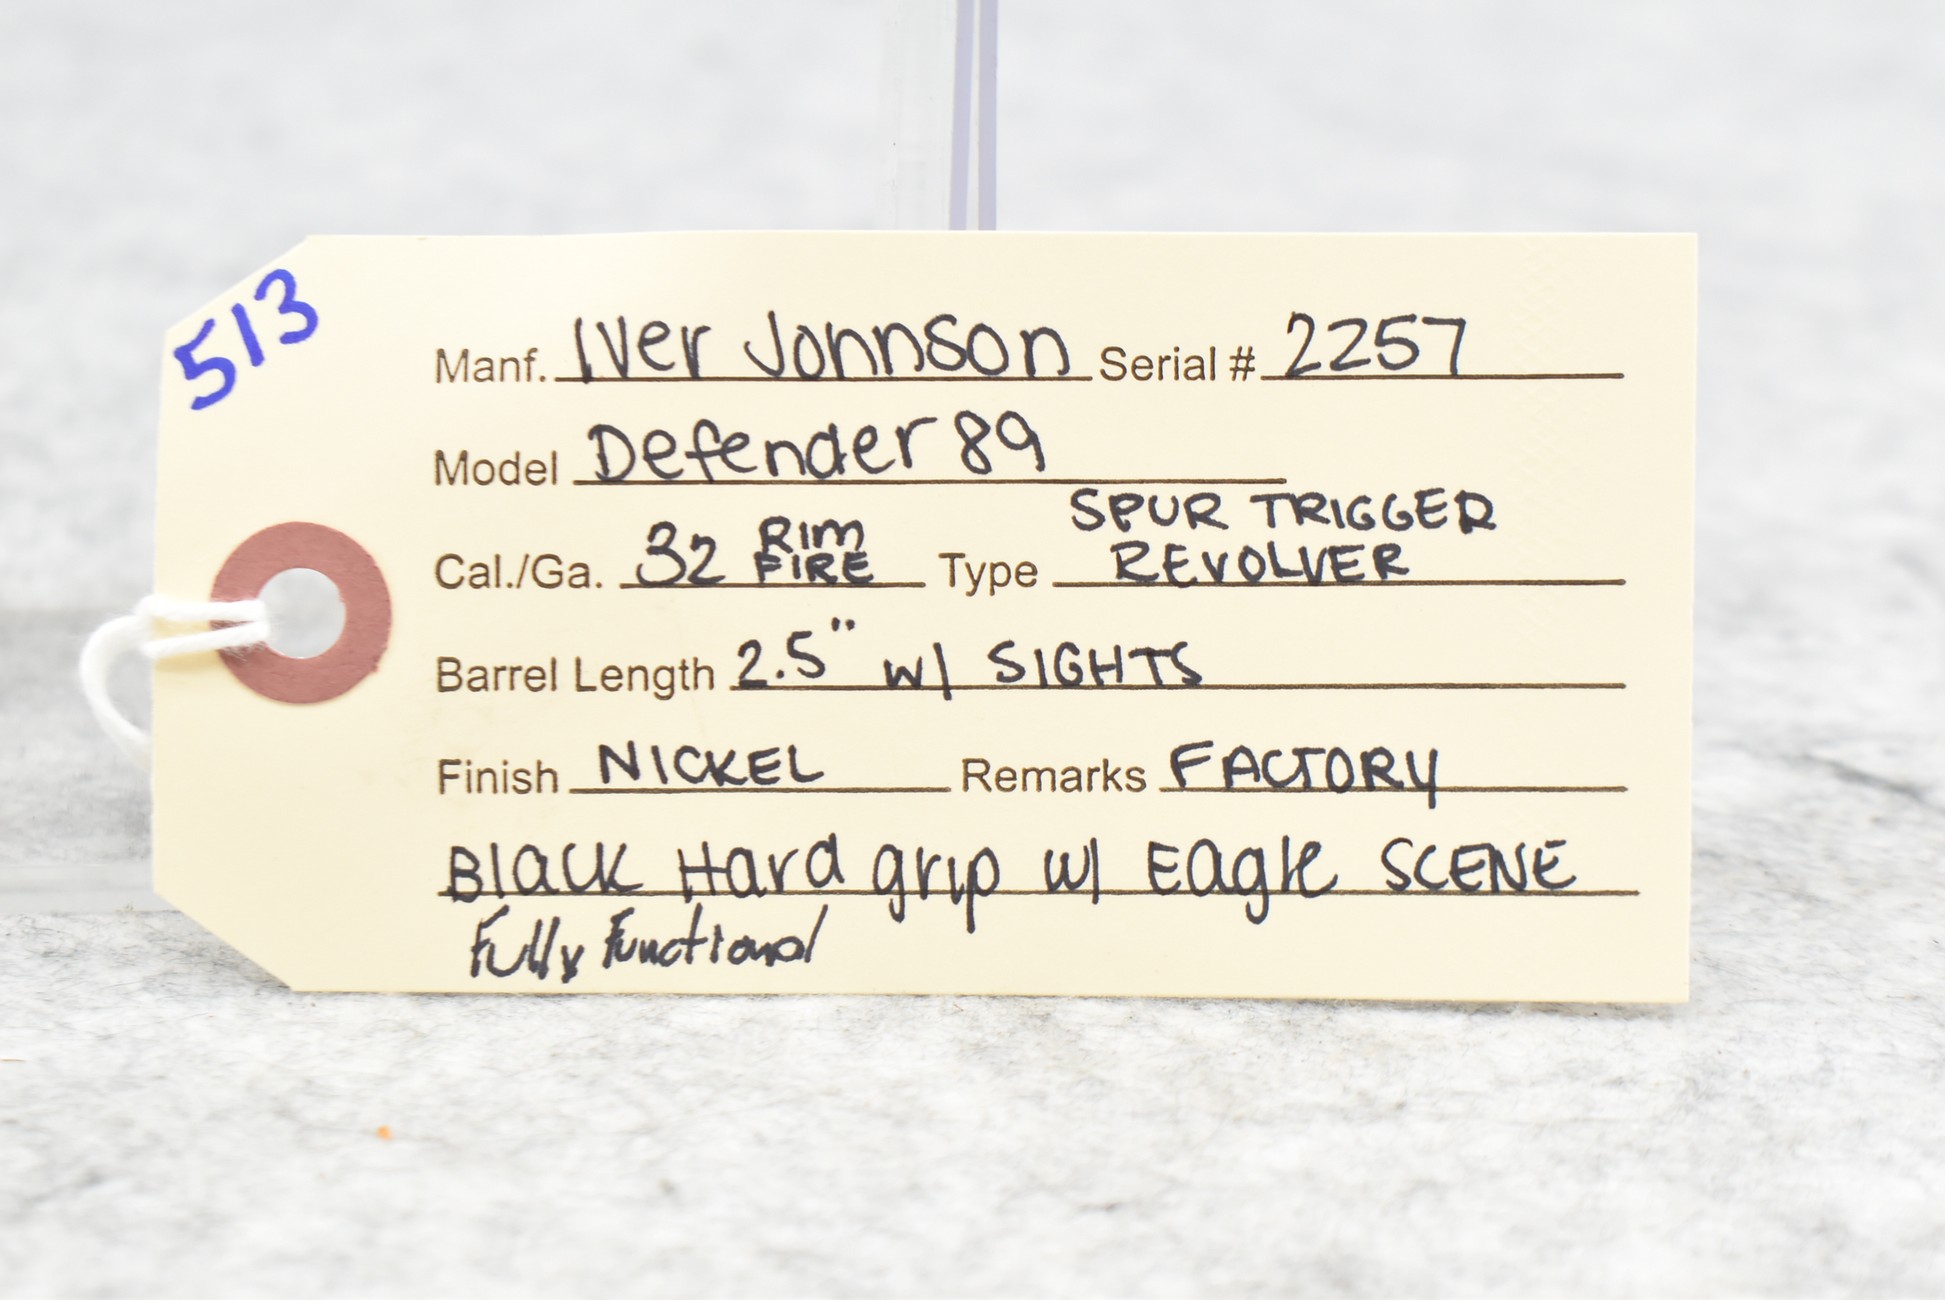 513
Manf. Iver Johnson Serial # 2257
Model Defender 89
Cal./Ga. 32 RIM FIRE Type SPUR TRIGGER REVOLVER
Barrel Length 2.5" w/ SIGHTS
Finish NICKEL Remarks FACTORY
Black Hard grip w/ Eagle SCENE
Fully Functional